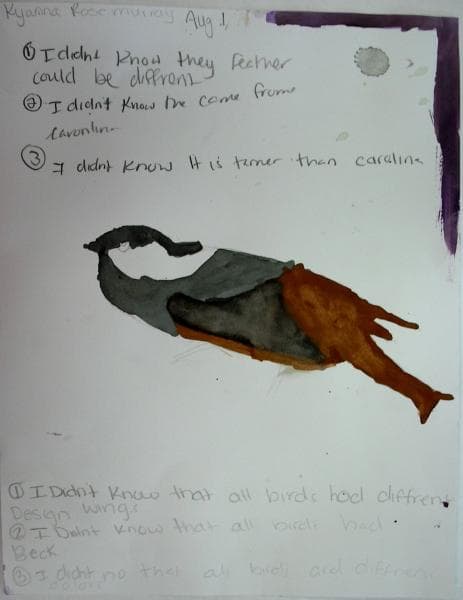 Kyanna Rose murray Aug 1,
① I didnt know they feather
could be diffrent
② I didnt know the come frome
caronlina
③ I didnt know It is terner than carolina
① I Didn't know that all birds had diffrent
Design wings
② I Didnt know that all birds had
Beck
③ I didnt no that all birds and diffrent
colors